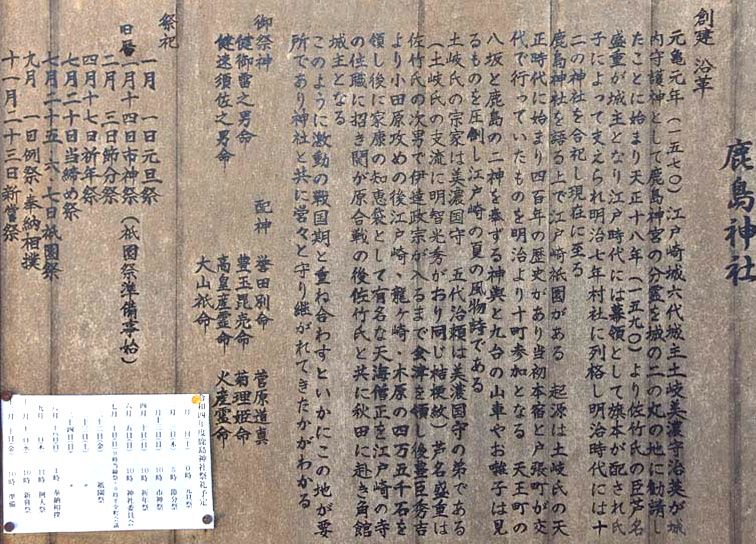 鹿島神社
創建 沿革
元亀元年(一五七〇)江戸崎城六代城主土岐美濃守治英が城
内守護神として鹿島神宮の分霊を城の二の丸の地に勧請し
たことに始まり天正十八年(一五九〇)より佐竹氏の臣芦名
盛重が城主となり江戸時代には幕領として旗本が配され氏
子によって支えられ明治七年村社に列格し明治時代には十
二の神社を合祀し現在に至る
鹿島神社を語る上で江戸崎祇園がある 起源は土岐氏の天
正時代に始まり四百年の歴史があり当初本宿と戸張町が交
代で行っていたものを明治より十町参加となる 天王町の
八坂と鹿島の二神を奉ずる神輿と九台の山車やお囃子は見
るものを圧倒し江戸崎の夏の風物詩である
土岐氏の宗家は美濃国守 五代治頼は美濃国守の弟である
(土岐氏の支流に明智光秀がおり同じ桔梗紋)芦名盛重は
佐竹氏の次男で伊達政宗が入るまで会津を領し後豊臣秀吉
より小田原攻めの後江戸崎、龍ヶ崎・木原の四万五千石を
領し後に家康の知恵袋として有名な天海僧正を江戸崎の寺
の住職に招き関が原合戦の後佐竹氏と共に秋田に赴き角館
城主となる
このように激動の戦国期と重ね合わすといかにこの地が要
所であり神社と共に営々と守り継がれてきたかがわかる
御祭神
健御雷之男命
健速須佐之男命
配神
誉田別命 菅原道真
豊玉毘売命 菊理姫命
高皇産霊命 火産霊命
大山祇命
祭祀
一月 一日元旦祭
旧暦一月十四日市神祭(祇園祭準備事始)
二月 三日節分祭
四月十七日祈年祭
七月二十日当締め祭
七月二十五・六・七日祇園祭
九月 一日例祭・奉納相撲
十一月二十三日新嘗祭
令和四年度鹿島神社祭礼予定